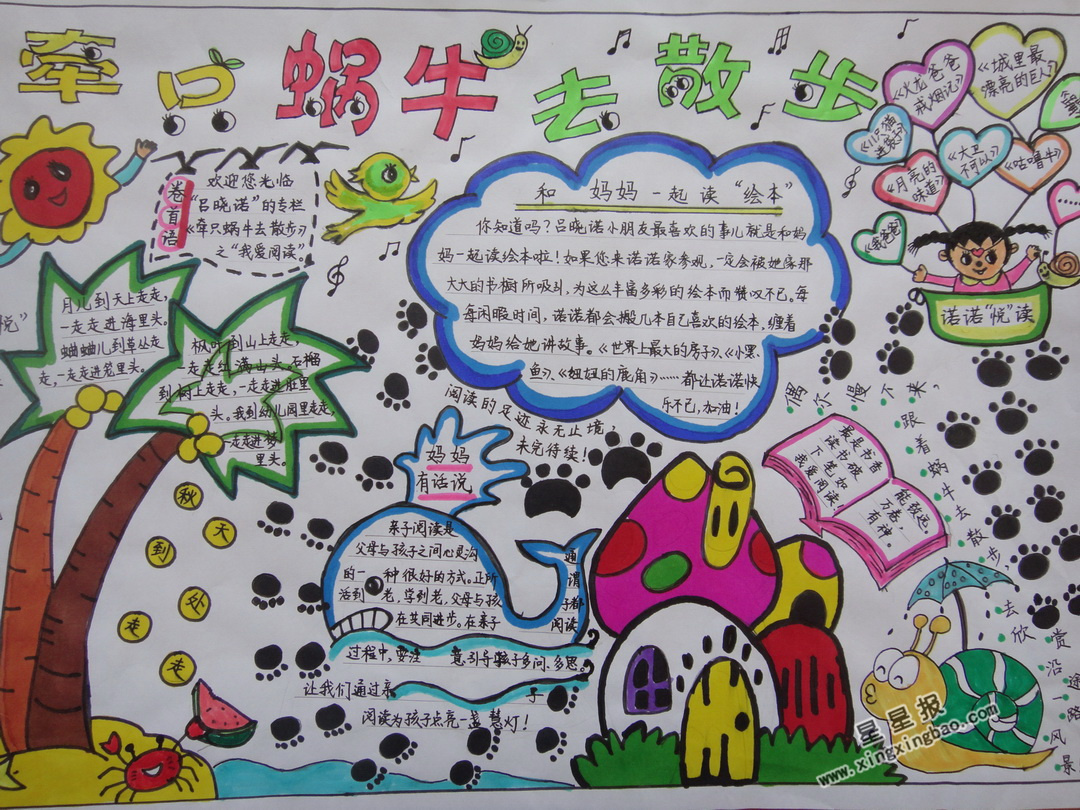 牵只蜗牛去散步
卷首语
欢迎您光临
“吕晓诺”的专栏
《牵只蜗牛去散步》
之“我爱阅读”。
和妈妈一起读“绘本”
你知道吗？吕晓诺小朋友最喜欢的事儿就是和妈
妈一起读绘本啦！如果您来诺诺家参观，一定会被她家那
大大的书橱所吸引，为这么丰富多彩的绘本而赞叹不已。每
每闲暇时间，诺诺都会搬几本自己喜欢的绘本，缠着
妈妈给她讲故事。《世界上最大的房子》、《小黑
鱼》、《妞妞的鹿角》……都让诺诺快
乐不已，加油！
阅读的足迹永无止境，
未完待续！
《火龙爸爸
戒烟记》
《城里最
漂亮的巨人》
《11只猫
进袋子》
《月亮的
味道》
《大卫
不可以》
《咕噜牛》
《我爸爸》
诺诺“悦”读
悦”
月儿到天上走走，
一走走进海里头。
蛐蛐儿到草丛走
走，一走走进笼里头。
枫叶到山上走走，
一走走红满山头。石榴
到树上走走，一走走进肚里
头。我到幼儿园里走走，
一走走进梦
里头。
秋天到处走走
妈妈
有话说
亲子阅读是
父母与孩子之间心灵沟通
的一种很好的方式。正所谓
活到老，学到老，父母与孩子都
在共同进步。在亲子阅读
过程中，要注意引导孩子多问、多思。
让我们通过亲子
阅读为孩子点亮一盏慧灯！
最是书香能致远。
读书破万卷，
下笔如有神。
我爱阅读、
偶尔慢个来，跟着蜗牛去散步，去欣赏沿途一路风景
星星报
www.xingxingbao.com